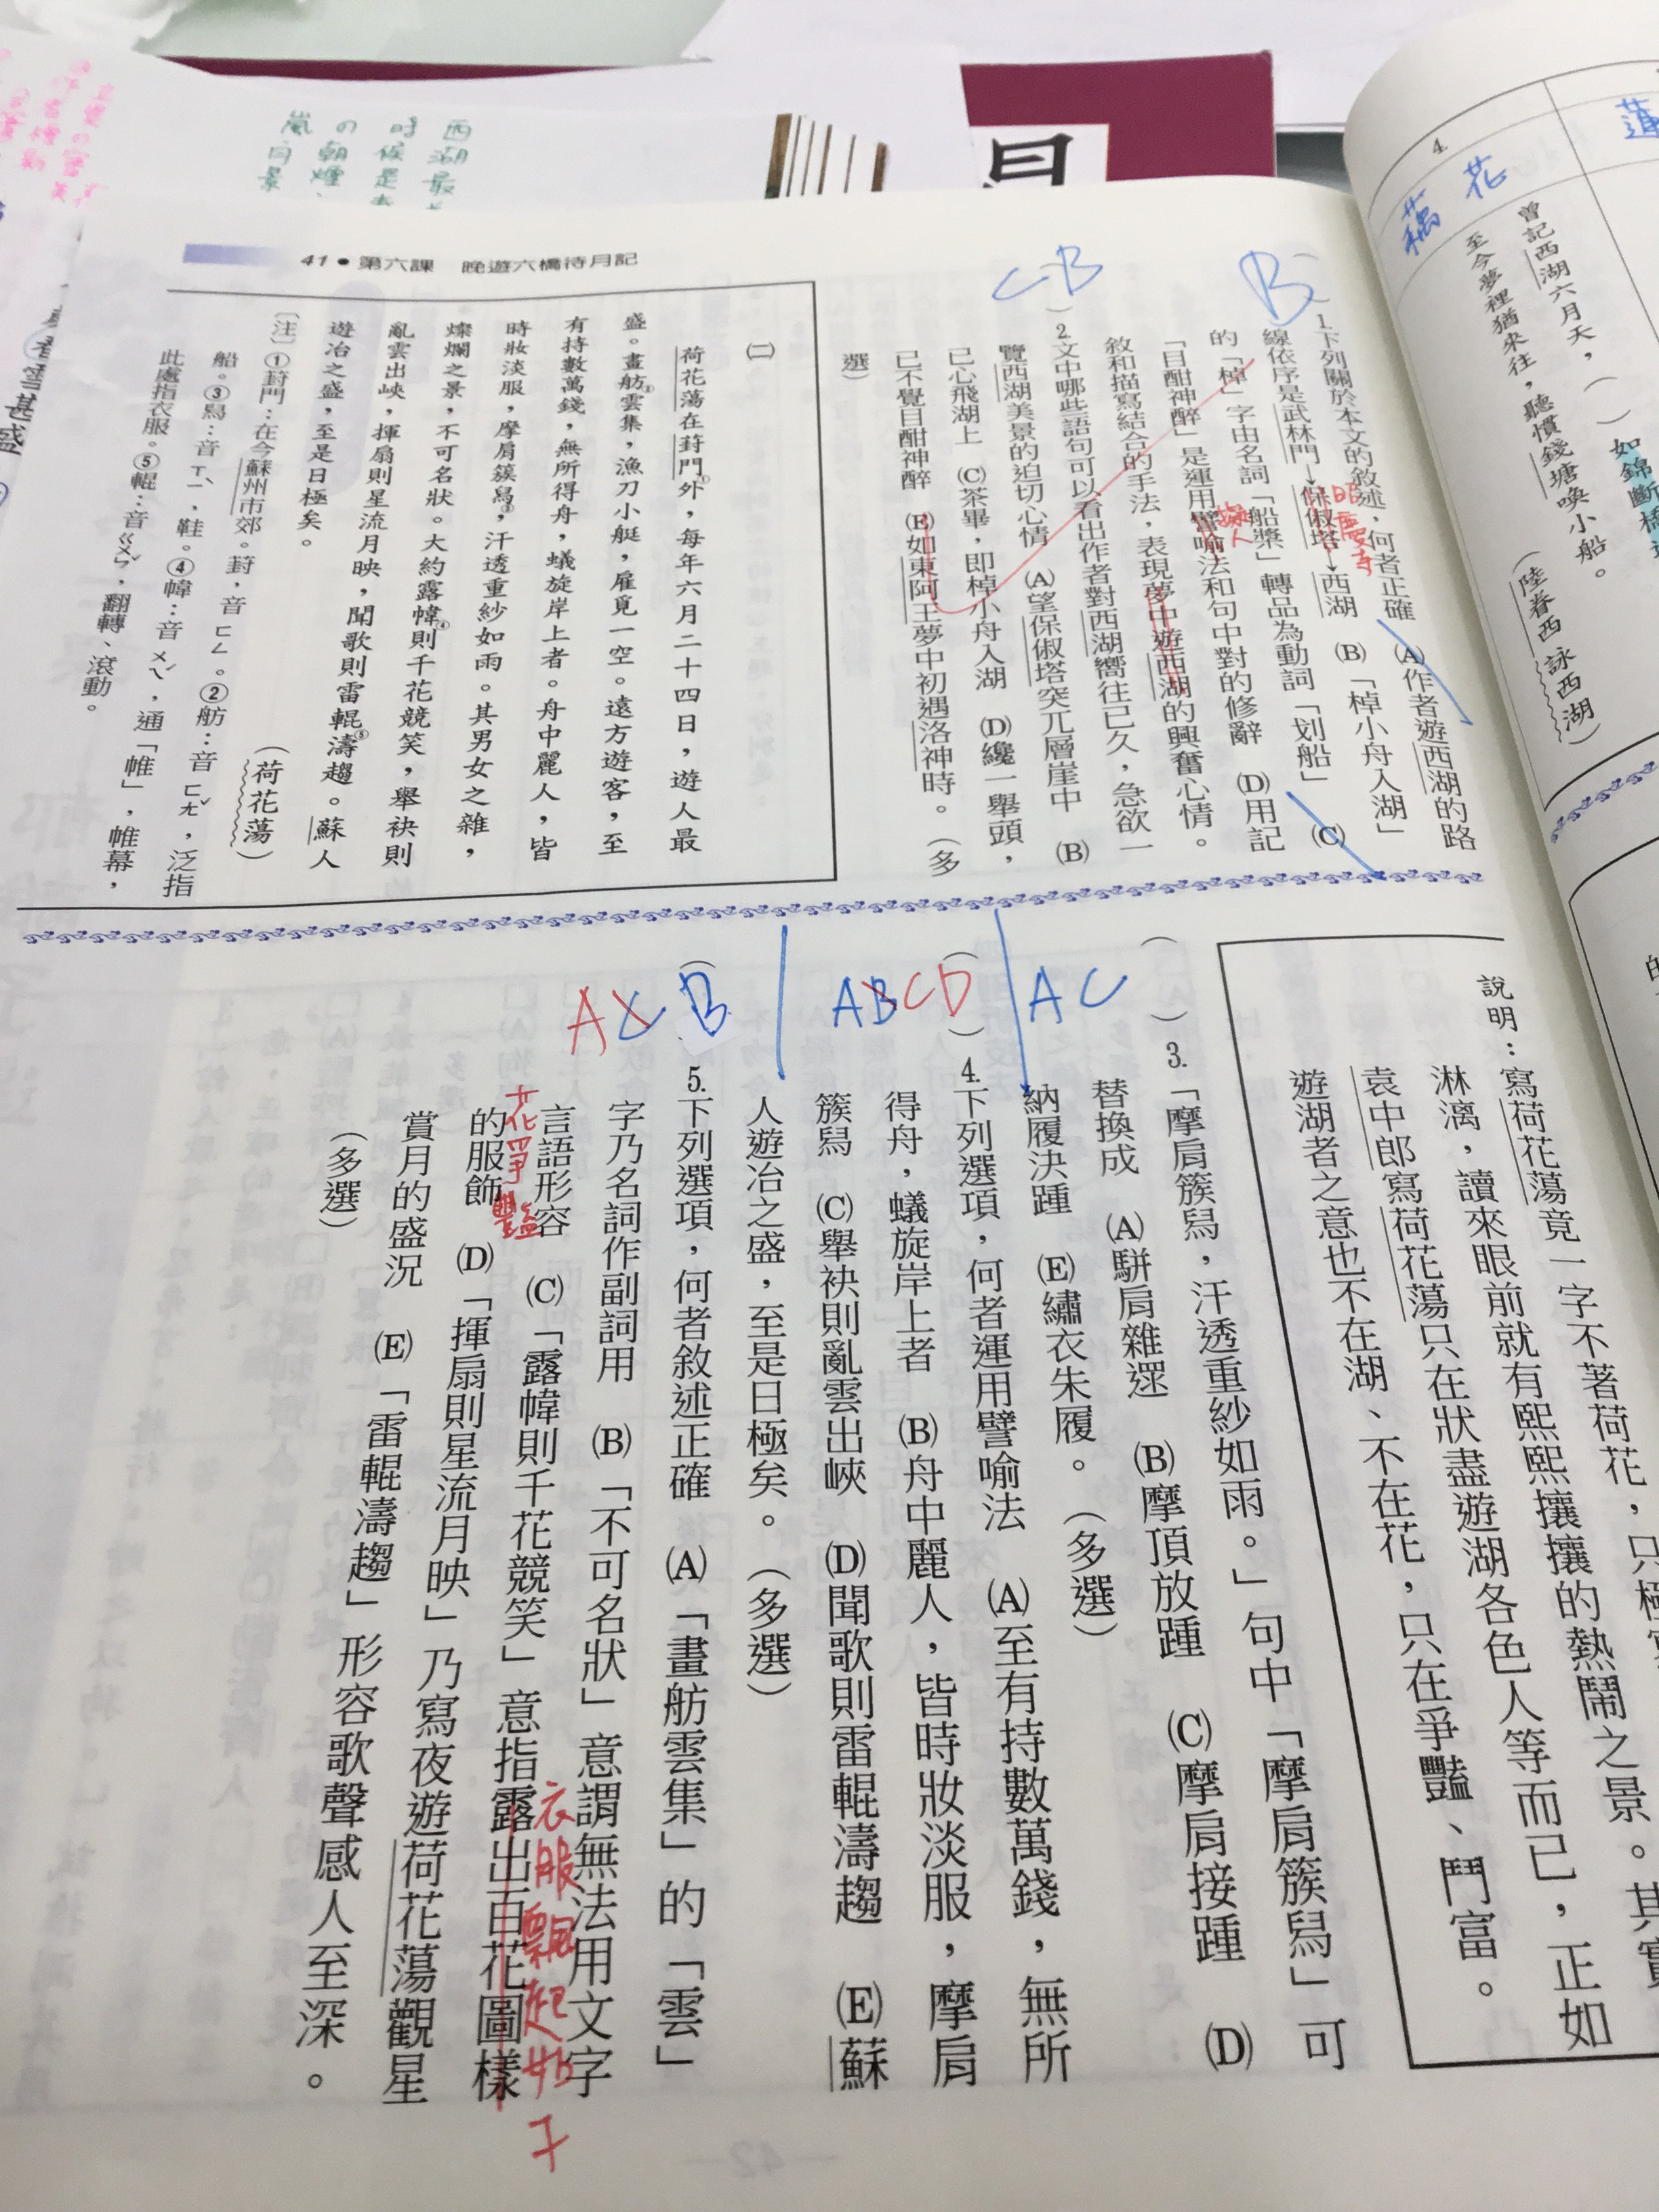 蓮
4.
藕花
曾記西湖六月天，（　）如錦斷橋
至今夢裡猶來往，聽慣錢塘喚小船。
（陸眷西 詠西湖）
西湖最
時候是
の朝煙
嵐
41●第六課　晚遊六橋待月記
B
1.下列關於本文的敘述，何者正確　(A)作者遊西湖的路
線依序是武林門→保俶塔→西湖　(B)「棹小舟入湖」
昭慶寺
的「棹」字由名詞「船槳」轉品為動詞「划船」　(C)
「目酣神醉」是運用譬喻法和句中對的修辭　(D)用記
擬人
敘和描寫結合的手法，表現夢中遊西湖的興奮心情。
CB
2.文中哪些語句可以看出作者對西湖嚮往已久，急欲一
覽西湖美景的迫切心情　(A)望保俶塔突兀層崖中　(B)
已心飛湖上　(C)茶畢，即棹小舟入湖　(D)纔一舉頭，
已不覺目酣神醉　(E)如東阿王夢中初遇洛神時。（多
選）
(二)
荷花蕩在葑門①外，每年六月二十四日，遊人最
盛。畫舫②雲集，漁刀小艇，雇覓一空。遠方遊客，至
有持數萬錢，無所得舟，蟻旋岸上者。舟中麗人，皆
時妝淡服，摩肩簇舄③，汗透重紗如雨。其男女之雜，
燦爛之景，不可名狀。大約露幃④則千花競笑，舉袂則
亂雲出峽，揮扇則星流月映，聞歌則雷輥⑤濤趨。蘇人
遊冶之盛，至是日極矣。
（荷花蕩）
〔注〕①葑門：在今蘇州市郊。葑，音ㄈㄥ。②舫：音ㄈㄤˇ，泛指
船。③舄：音ㄒㄧˋ，鞋。④幃：音ㄨㄟˊ，通「帷」，帷幕，
此處指衣服。⑤輥：音ㄍㄨㄣˇ，翻轉、滾動。
說明：寫荷花蕩竟一字不著荷花，只極
淋漓，讀來眼前就有熙熙攘攘的熱鬧之景。其實
袁中郎寫荷花蕩只在狀盡遊湖各色人等而已，正如
遊湖者之意也不在湖、不在花，只在爭豔、鬥富。
AC
3.「摩肩簇舄，汗透重紗如雨。」句中「摩肩簇舄」可
替換成　(A)駢肩雜遝　(B)摩頂放踵　(C)摩肩接踵　(D)
納履決踵　(E)繡衣朱履。（多選）
ABCD
4.下列選項，何者運用譬喻法　(A)至有持數萬錢，無所
得舟，蟻旋岸上者　(B)舟中麗人，皆時妝淡服，摩肩
簇舄　(C)舉袂則亂雲出峽　(D)聞歌則雷輥濤趨　(E)蘇
人遊冶之盛，至是日極矣。（多選）
ACB
5.下列選項，何者敘述正確　(A)「畫舫雲集」的「雲」
字乃名詞作副詞用　(B)「不可名狀」意謂無法用文字
言語形容　(C)「露幃則千花競笑」意指露出百花圖樣
花爭豔
衣服飄起如
的服飾　(D)「揮扇則星流月映」乃寫夜遊荷花蕩觀星
賞月的盛況　(E)「雷輥濤趨」形容歌聲感人至深。
（多選）